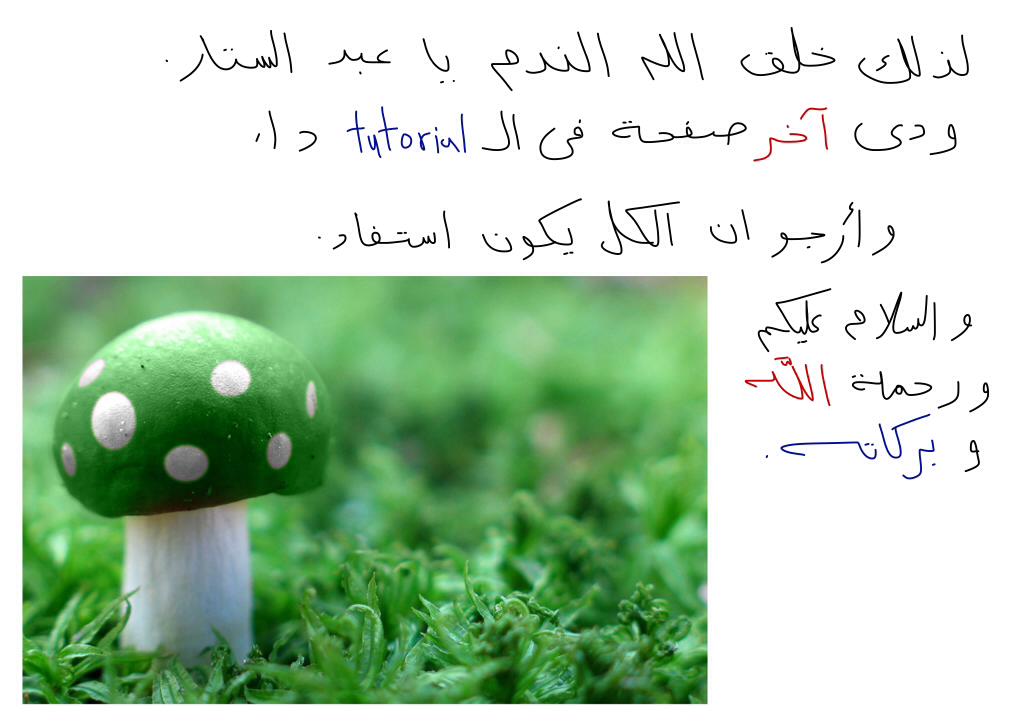 لذلك خلق الله الندم يا عبد الستار.
ودى آخر صفحة فى الـ tutorial دا،
وأرجو ان الكل يكون استفاد.
والسلام عليكم
ورحمة اللّه
و بركاته.